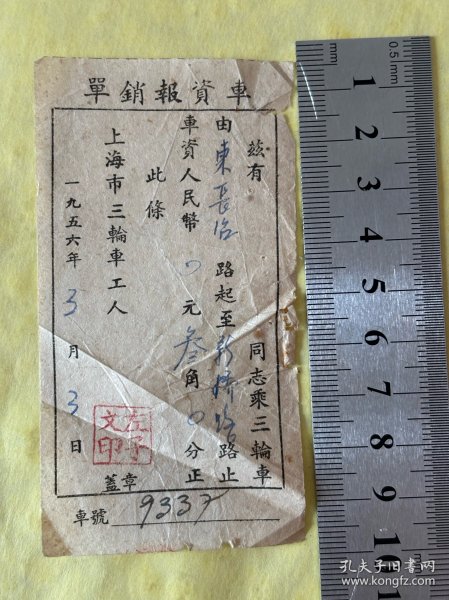 單銷報資車
茲有 同志乘三輪車
由東長治路起至新橋路路止
車資人民幣0元叁角0分正
此條
上海市三輪車工人
一九五六年3月3日
左子文印
蓋章
車號 9337
0.5mm
1
2
3
4
5
6
7
8
9
10
孔夫子旧书网
www.kongfz.com